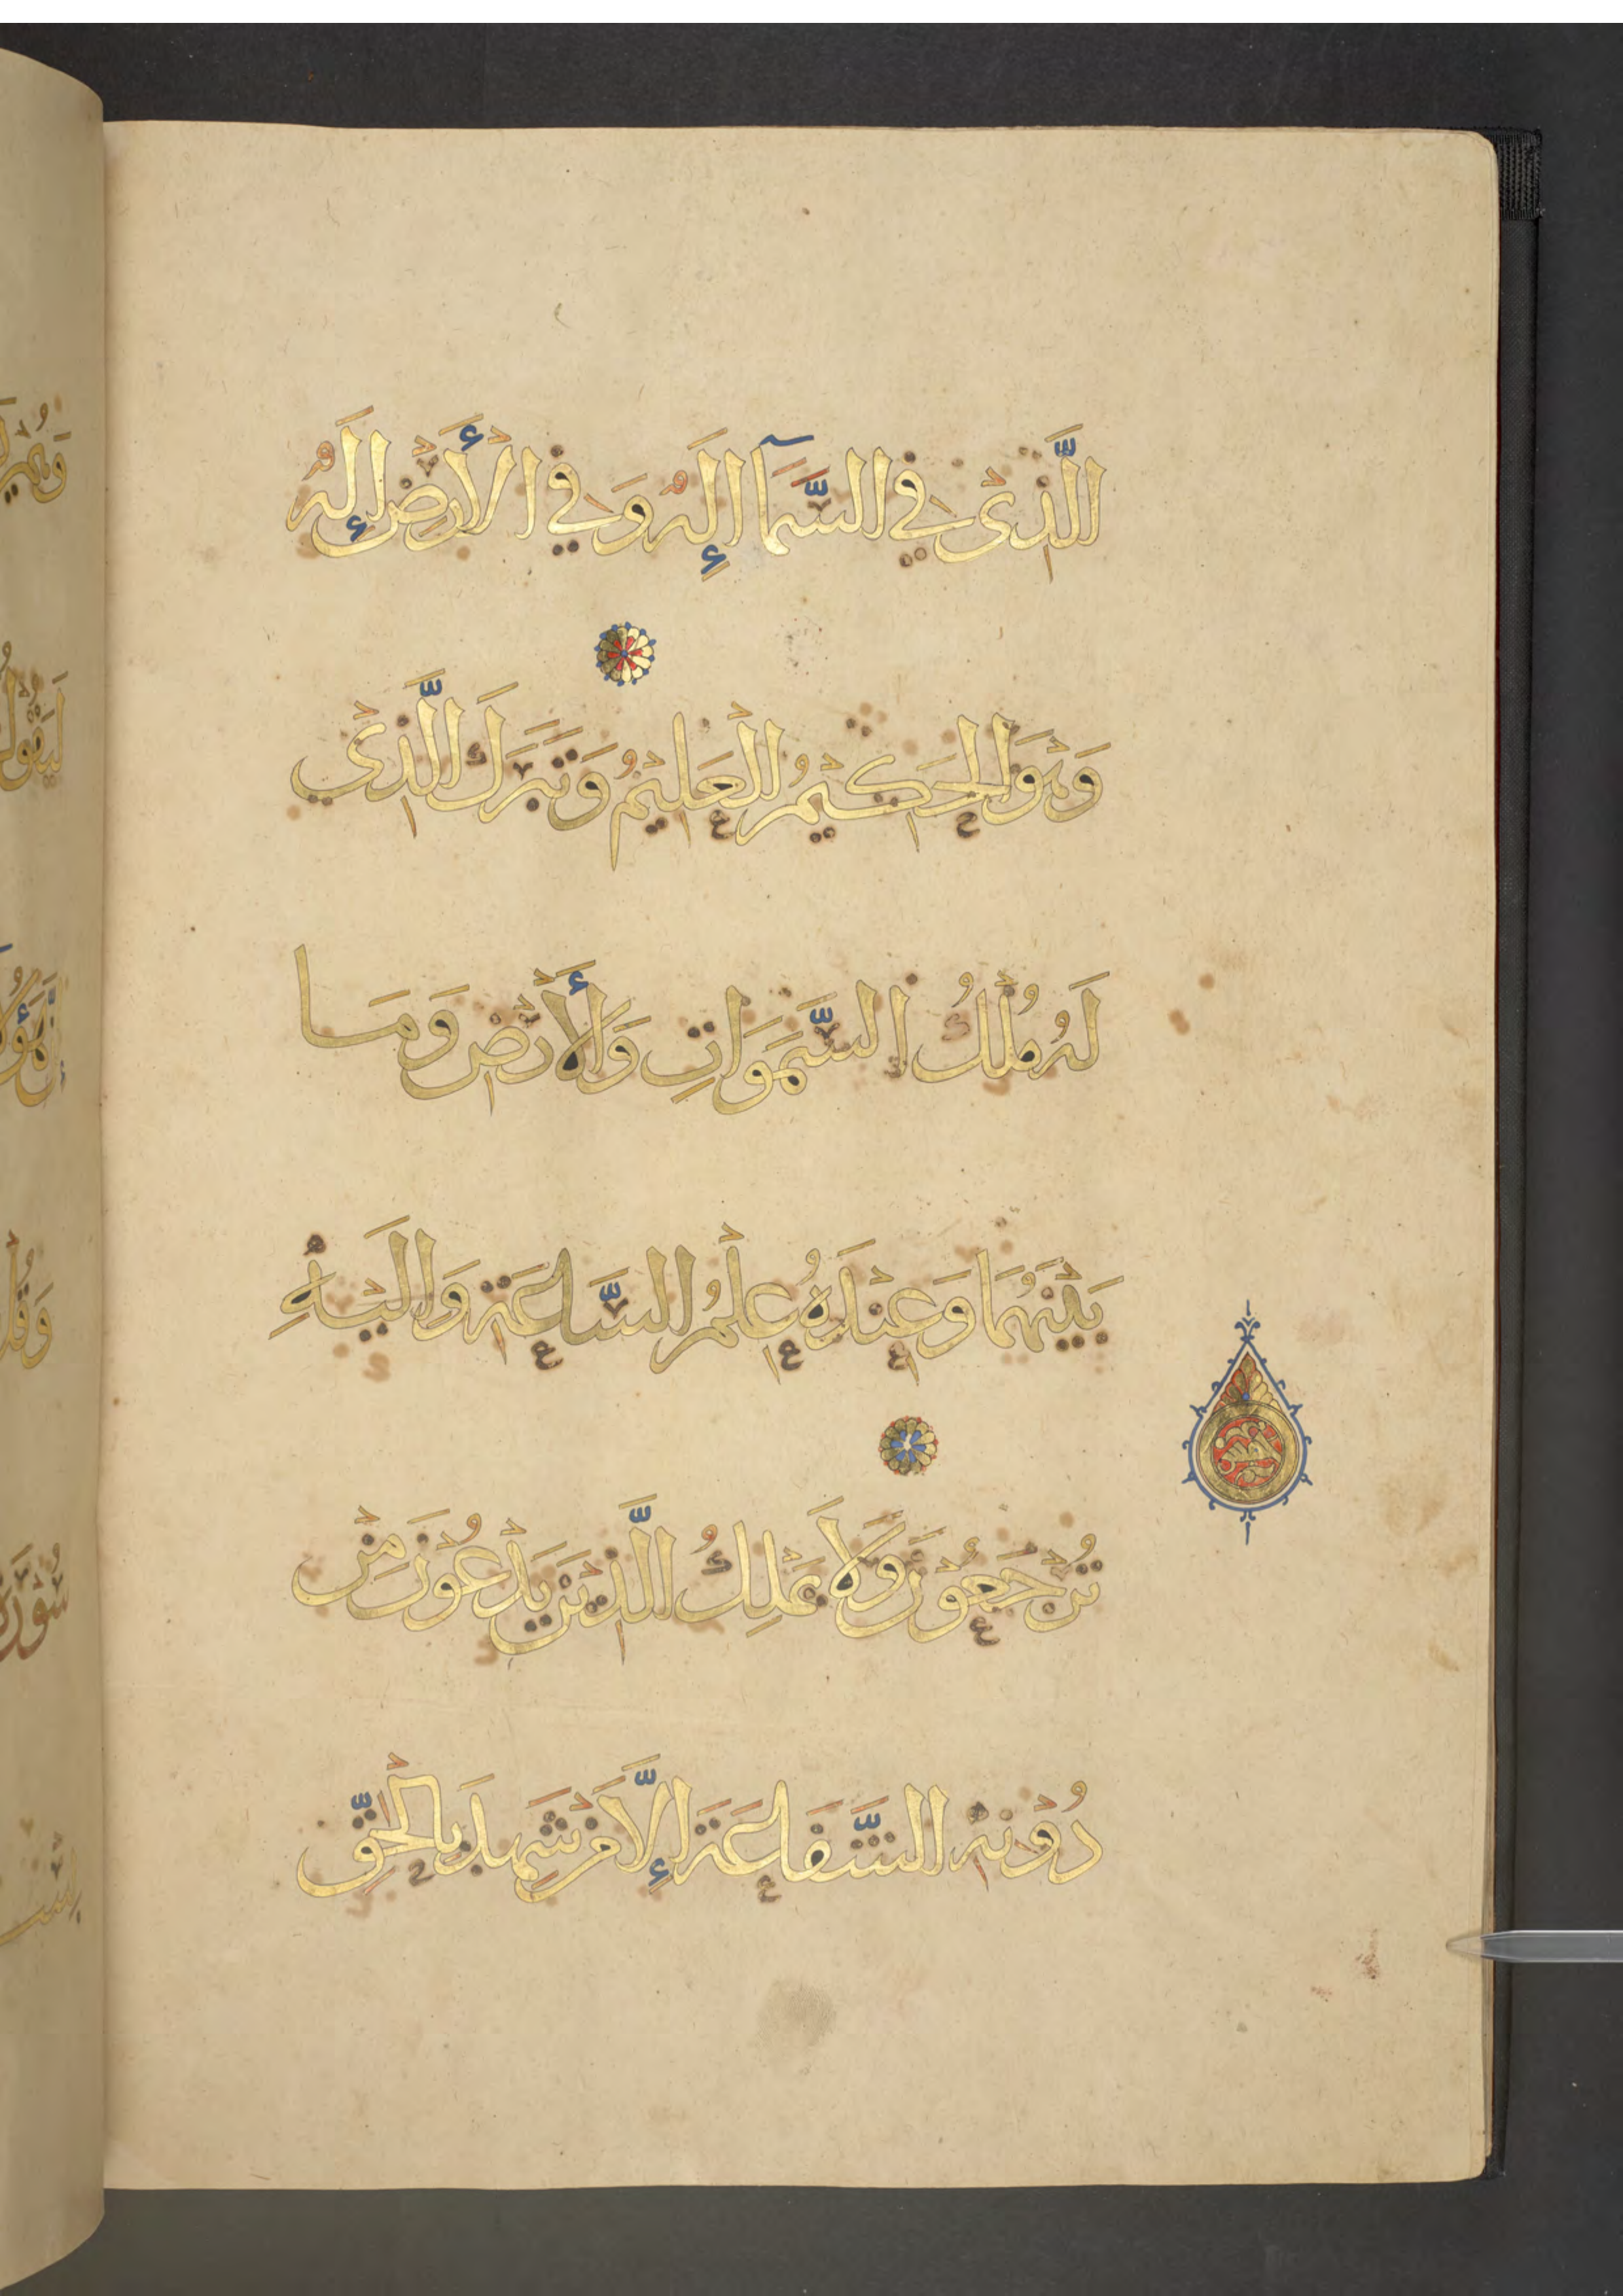 الَّذِيْ فِي السَّمَآ إِلَهٌ وَفِي الْأَرْضِ إِلَهٌ
وَهْوَ الْحَكِيْمُ الْعَلِيْمُ وَتَبَرَكَ الَّذِيْ
لَهُ مُلْكُ السَّمَوَاتِ وَالْأَرْضِ وَمَا
بَيْنَهُمَا وَعِنْدَهُ عِلْمُ السَّاعَةِ وَإِلَيْهِ
تُرْجَعُوْنَ وَلَا يَمْلِكُ الَّذِيْنَ يَدْعُوْنَ مِنْ
دُوْنِهِ الشَّفَاعَةَ إِلَّا مَنْ شَهِدَ بِالْحَقِّ